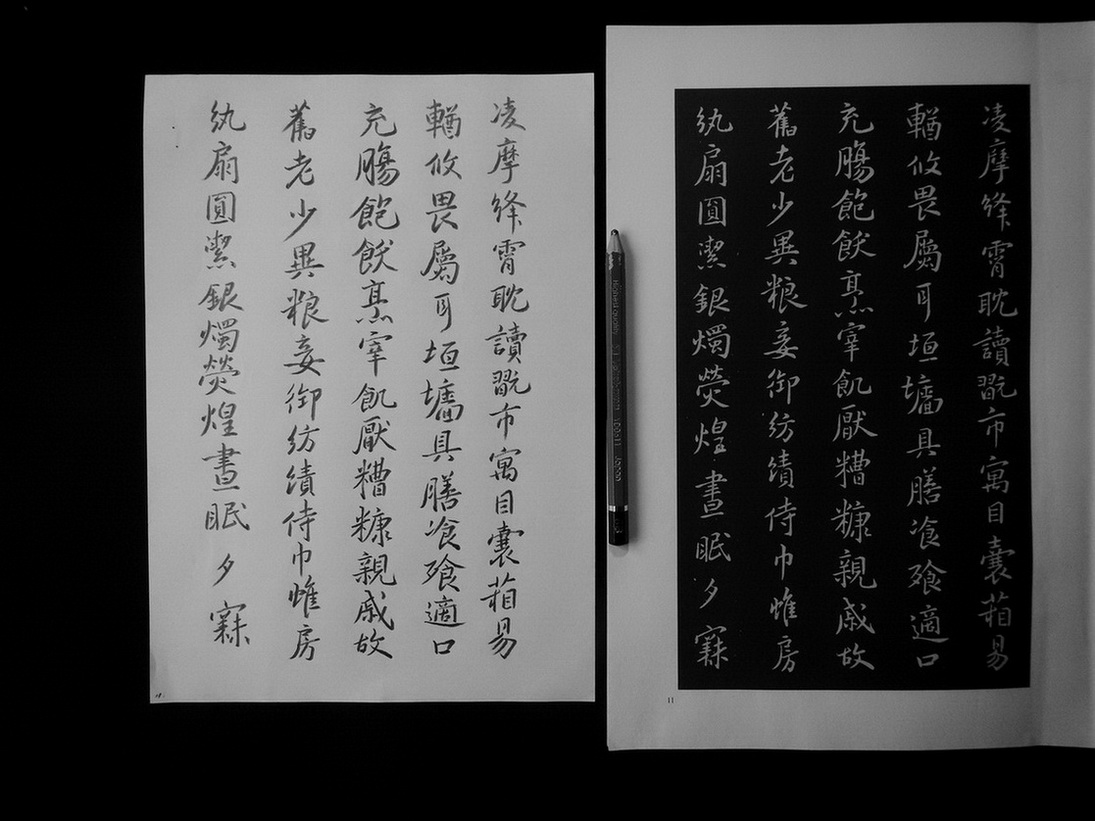 凌摩絳霄耽讀翫市寓目囊葙易
輶攸畏屬耳垣墻具膳飡飱適口
充膓飽飫烹宰飢厭糟糠親戚故
舊老少異粮妾御紡績侍巾帷房
紈扇圓潔銀燭熒煌晝眠夕寐
凌摩絳霄耽讀翫市寓目囊葙易
輶攸畏屬耳垣墻具膳飡飱適口
充膓飽飫烹宰飢厭糟糠親戚故
舊老少異粮妾御紡績侍巾帷房
紈扇圓潔銀燭熒煌晝眠夕寐
11